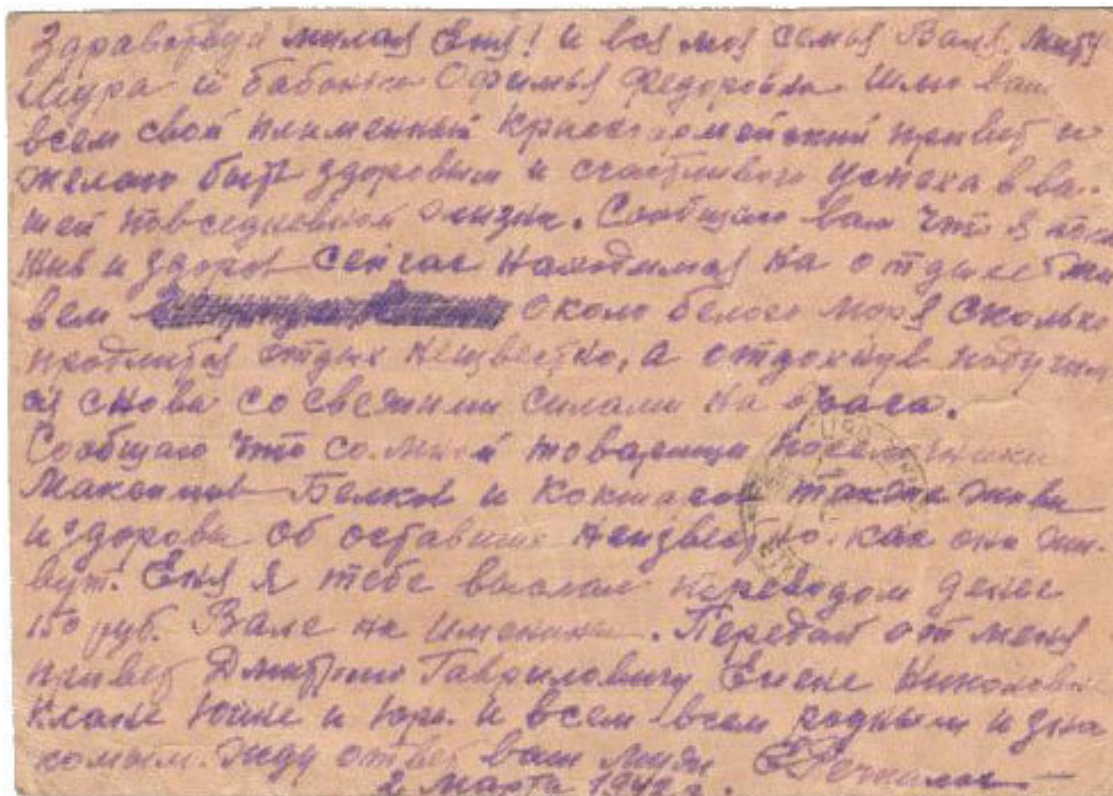 Здравствуй милая Еня! и вся моя семья Валя,
Шура и бабонька Офимья Федоровна шлю вам
всем свой пламенный красноармейский привет и
желаю быть здоровым и счастливого успеха в ва-
шей повседневной жизни. Сообщаю вам что я
жив и здоров сейчас находимся на отдыхе жи
вем около белого моря сколько
продлится отдых неизвестно, а отдохнув
ся снова со свежими силами на врага.
Сообщаю что со мной товарищи
Максимов Белков и также живы
и здоровы об оставших неизвестно. как они жи-
вут. Еня я тебе выслал переводом денег
150 руб. Вале на именины. Передай от меня
привет Дмитрию Гавриловичу Елене Николовне
Клане и Юре. и всем всем родным и зна
комым. Жду ответ ваш
2 марта 1942 г.